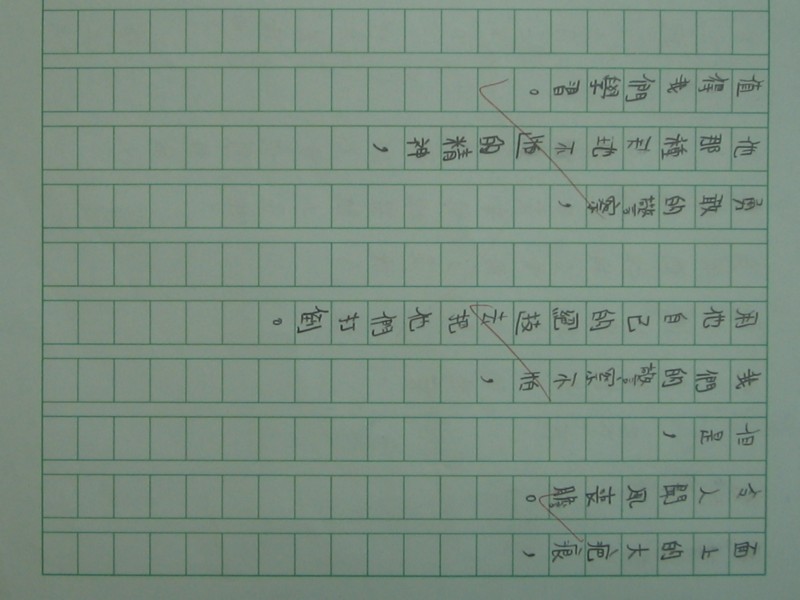 面上的大疤痕，
令人聞風喪膽。
但是，
我們的警察不怕，
用他自己的絕技去把他們打倒。
勇敢的警察，
他那種天地不怕的精神，
值得我們學習。